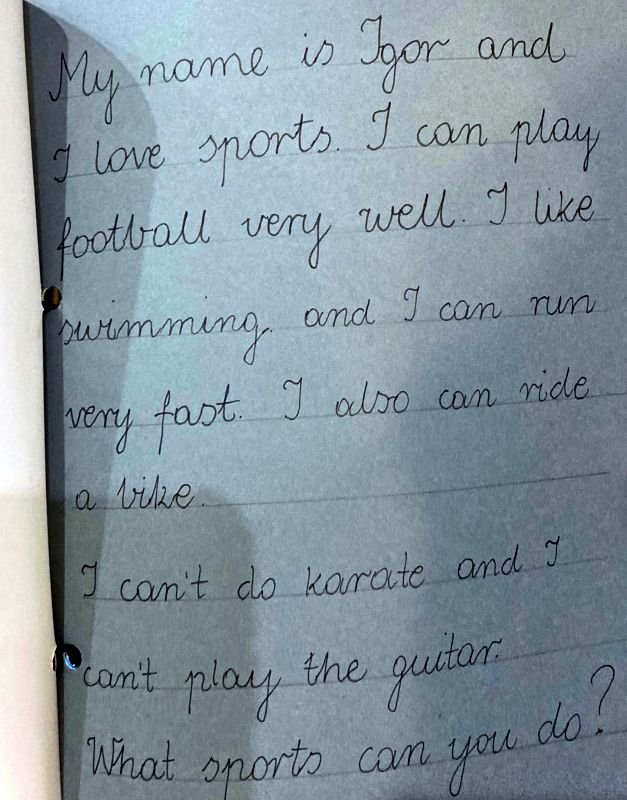 My name is Igor and
I love sports. I can play
football very well. I like
swimming. and I can run
very fast. I also can ride
a bike.
I can't do karate and I
can't play the guitar.
What sports can you do?